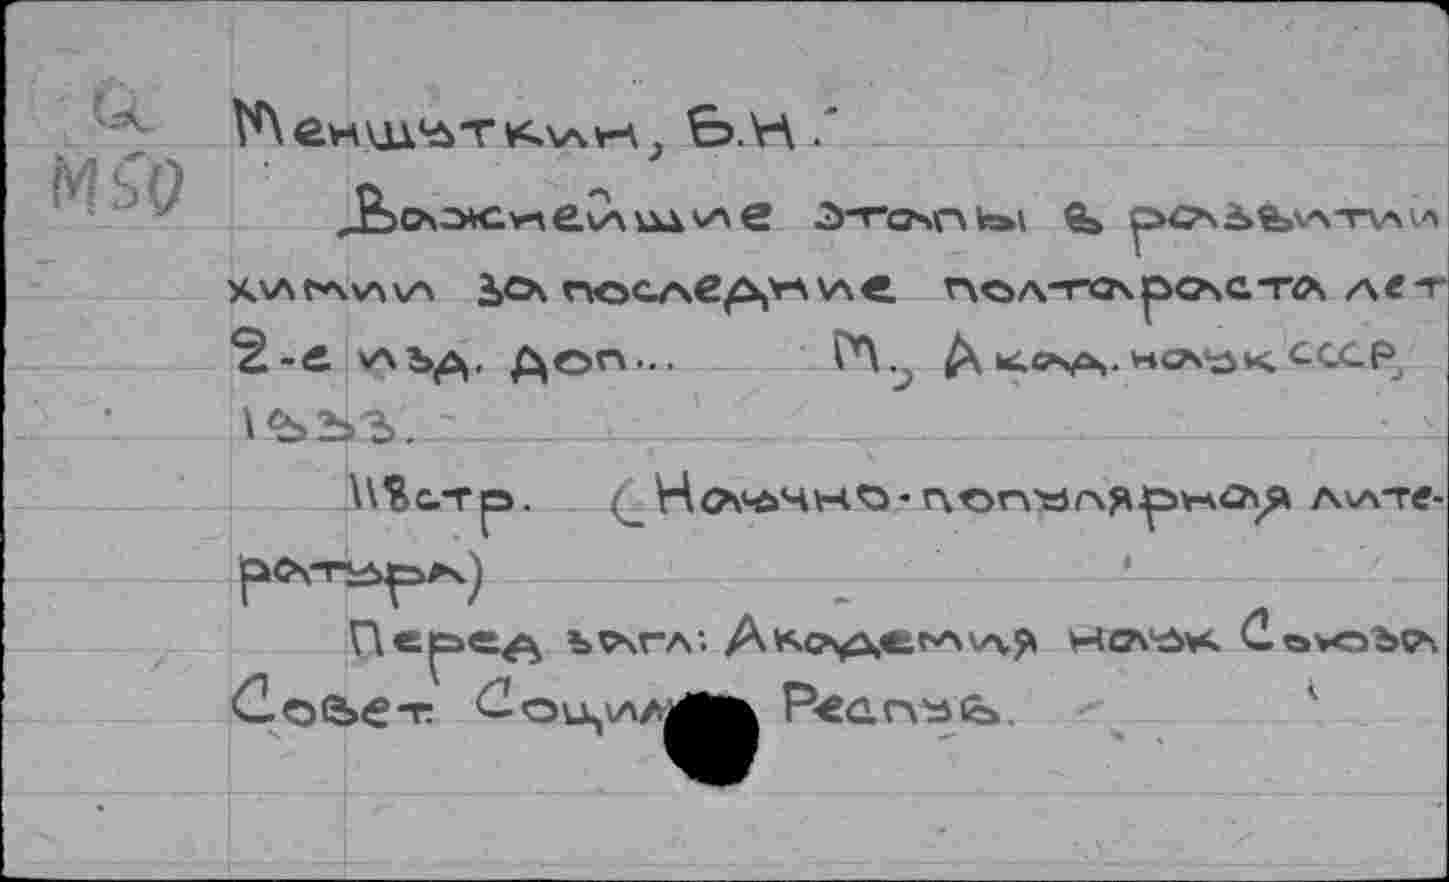 Q
M50
Меншуткин, Б.Н.
Важнейшие этапы в развитии
химии за последние полтараста лет
2-е изд. доп... М., Акад. наук СССР,
1933.
112стр. (Научно-популярная лите-
ратура)
Перед загл: Академия наук Союза
Совет. Социал Респуб.